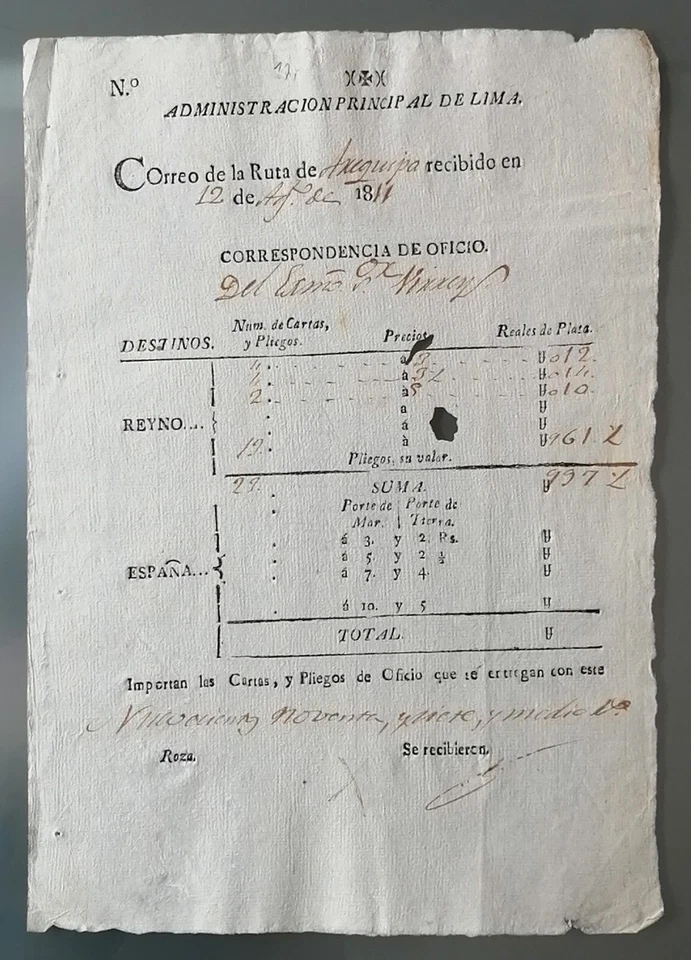 N.º
ADMINISTRACION PRINCIPAL DE LIMA.
COrreo de la Ruta de Arequipa recibido en
12 de Agto. de 1811
CORRESPONDENCIA DE OFICIO.
Del Exmo Sr. Virrey
DESTINOS. Num. de Cartas, y Pliegos. Precios. Reales de Plata.
4. à 3 012.
4. à 3½ 014.
2. à 5 010.
a
REYNO.... á
19. à 961 ½
Pliegos, su valor.
29. SUMA. 997 ½
Porte de Mar. Porte de Tierra.
á 3. y 2. Rs.
á 5. y 2 ½
ESPAÑA... á 7. y 4.
á 10. y 5
TOTAL.
Importan las Cartas, y Pliegos de Oficio que sé entregan con este
Nuevecientos noventa, y siete, y medio Rs.
Roza. Se recibieron.